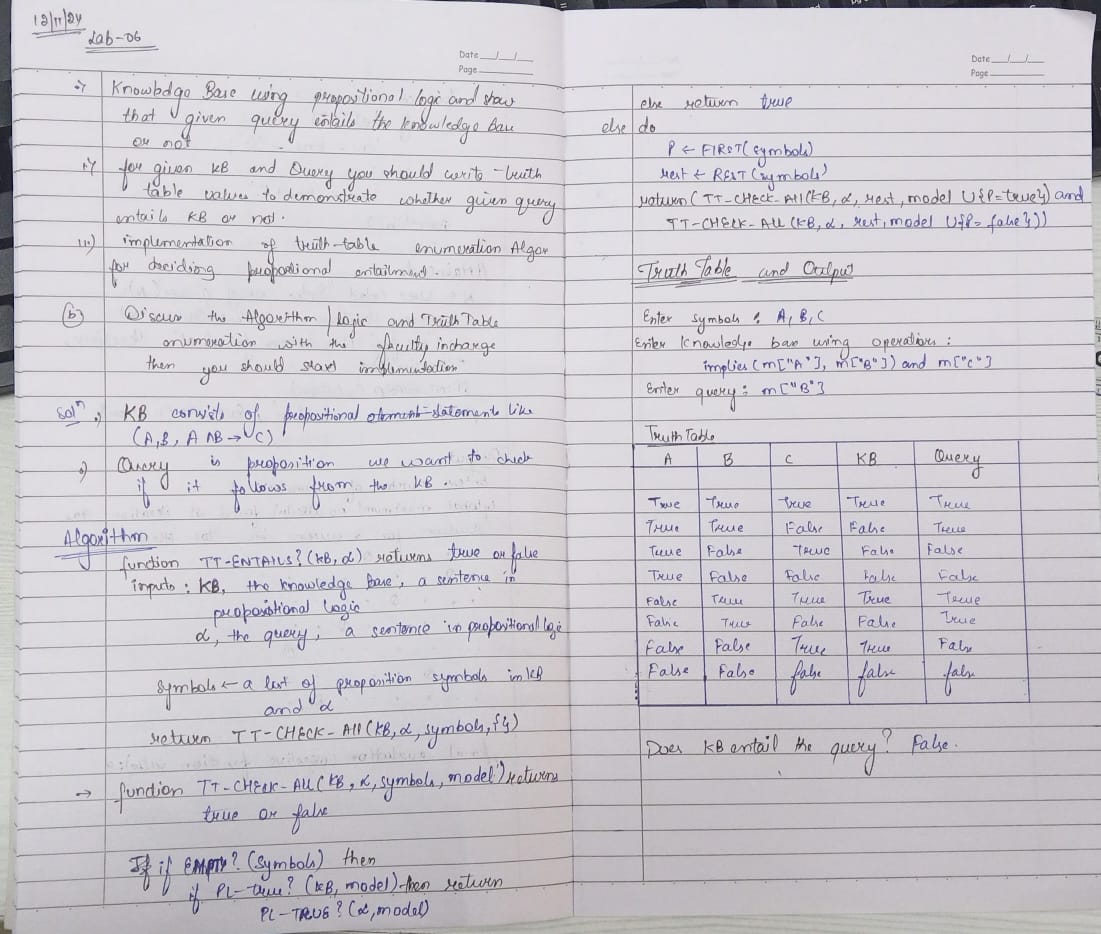 12/11/24
Lab-06
Date __/__/__
Page ______
Knowbdge Base using propositional logic and show
that given query entails the knowledge base
or not
ii) for given KB and Query you should write truth
table values to demonstrate whether given query
entails KB or not.
iii) implementation of truth-table enumeration Algor
for deciding propotional entailment.
(b) Discuss the Algorithm / Logic and Truth Table
enumeration with the faculty incharge
then you should start implementation
Solⁿ KB consists of propositional element statements like
(A, B, A ∧ B → C)
Query is proposition we want to check
if it follows from the KB.
Algorithm
function TT-ENTAILS? (KB, α) returns true or false
inputs : KB, the knowledge base, a sentence in
propositional logic
α, the query, a sentence in propositional logic
symbols ← a list of proposition symbols in KB
and α
return TT-CHECK-All (KB, α, symbols, {})
→ function TT-CHECK-ALL (KB, α, symbols, model) returns
true or false
If if EMPTY? (Symbols) then
if PL-true? (KB, model) then return
PL-TRUE? (α, model)
Date __/__/__
Page ______
else return true
else do
P ← FIRST(symbols)
rest ← REST(symbols)
return (TT-CHECK-All(KB, α, rest, model U {P=true}) and
TT-CHECK-ALL (KB, α, rest, model U {P= false}))
Truth Table and Output
Enter symbols : A, B, C
Enter knowledge base using operations :
implies (m["A"], m["B"]) and m["C"]
Enter query : m["B"]
Truth Table
A B C KB Query
True True True True True
True True False False True
True False True False False
True False False False False
False True True True True
False True False False True
False False True True False
False False false false false
Does KB entail the query? False.